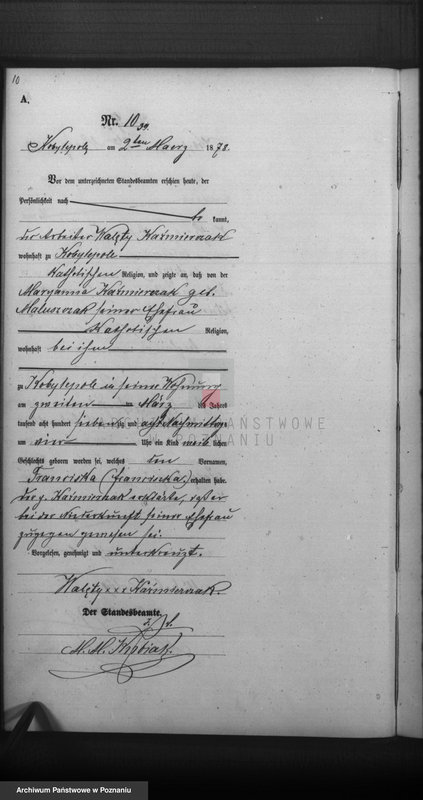 10
A.
Nr. 10
Kobylepole am 2ten Maerz 1878.
Vor dem unterzeichneten Standesbeamten erschien heute, der
Persönlichkeit nach
be kannt,
der Arbeiter Walęty Kaźmierczak
wohnhaft zu Kobylepole
Katholischen Religion, und zeigte an, daß von der
Maryanna Kaźmierczak geb.
seiner Ehefrau
Katholischen Religion,
wohnhaft bei ihm
zu Kobylepole in seiner Wohnung
am zweiten März des Jahres
tausend acht hundert siebenzig und acht Nachmittags
um vier Uhr ein Kind weib lichen
Geschlechts geboren worden sei, welches den Vornamen,
Franciska (Franciszka) erhalten habe.
Der p. Kaźmierczak erklärte, daß er
bei der Niederkunft seiner Ehefrau
zugegen gewesen sei.
Vorgelesen, genehmigt und unterkreuzt.
Walęty xxx Kaźmierczak.
Der Standesbeamte.
ARCHIWUM PAŃSTWOWE
W POZNANIU
Archiwum Państwowe w Poznaniu